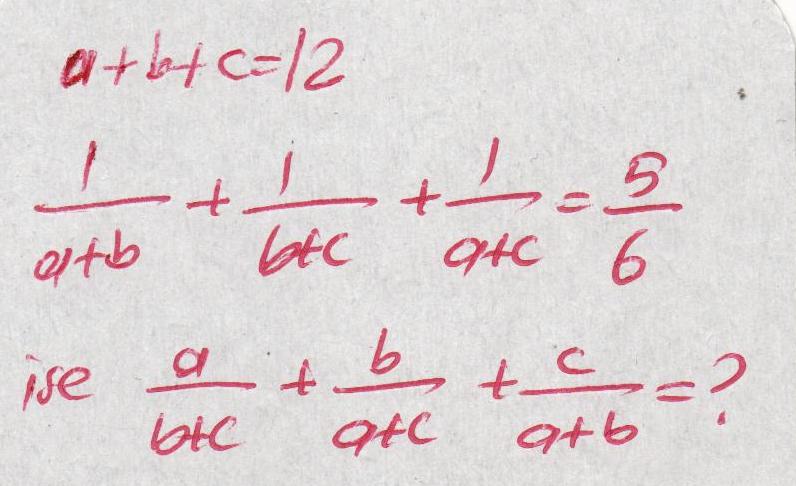 a+b+c=12
1/(a+b) + 1/(b+c) + 1/(a+c) = 5/6
ise a/(b+c) + b/(a+c) + c/(a+b) = ?